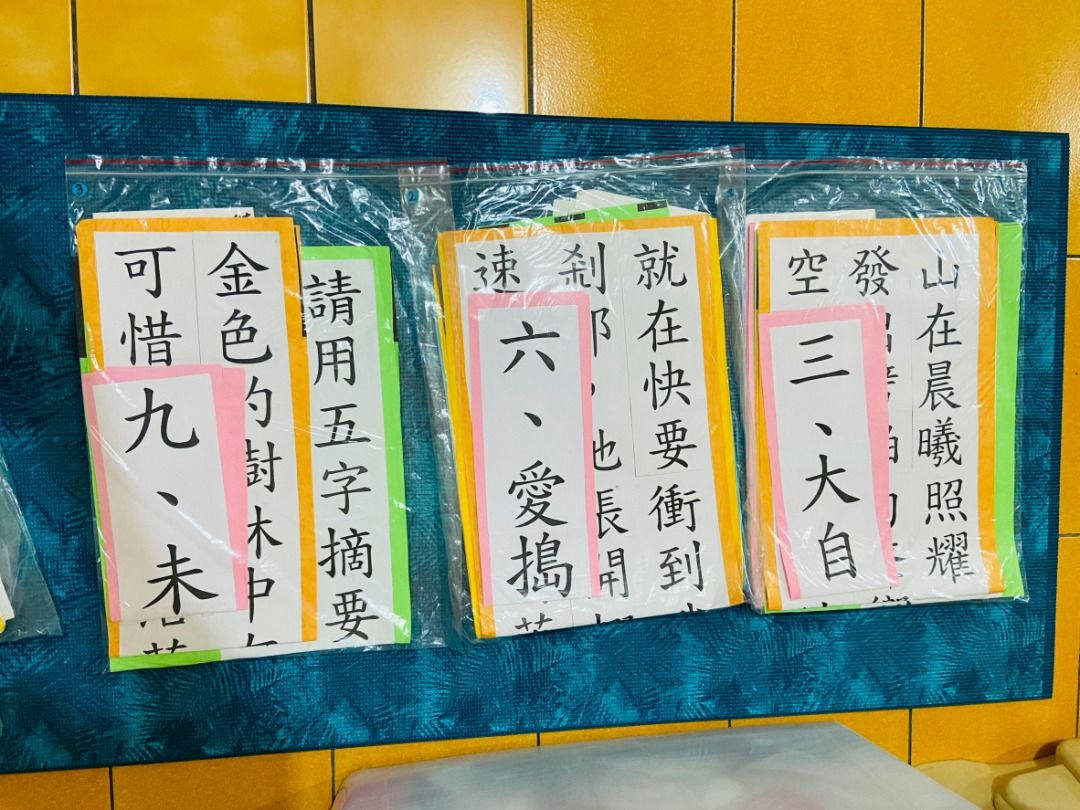 山在晨曦照耀
發
空
三、大自
就在快要衝到
剎那，他張開
速
六、愛搗
請用五字摘要
金色的樹林中
可惜
九、未
3
2